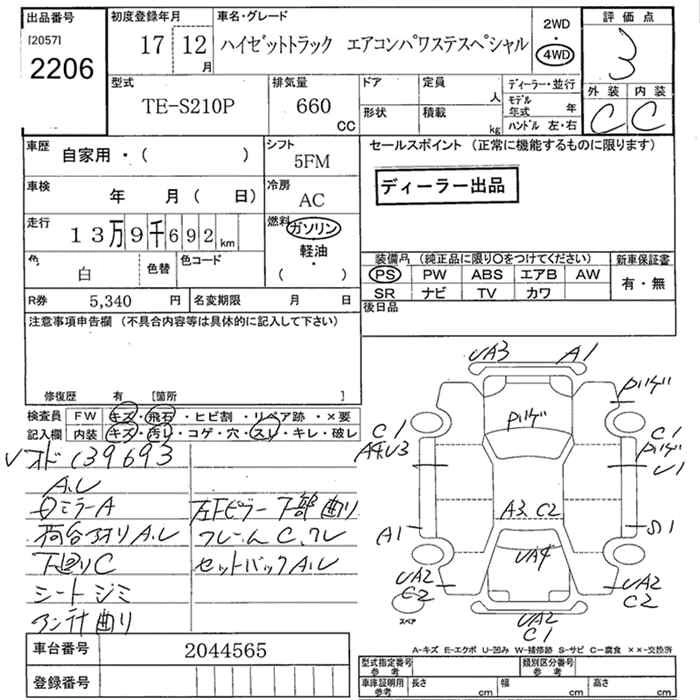 出品番号
[2057]
2206
初度登録年月
17 12月
車名・グレード
ハイゼットトラック エアコンパワステスペシャル
2WD
・
4WD
評価点
3
外装 内装
C C
型式
TE-S210P
排気量
660
CC
ドア
形状
定員
人
積載
kg
ディーラー・並行
モデル年式 年
ハンドル 左・右
車歴
自家用・( )
シフト
5FM
車検
年 月( 日)
冷房
AC
走行
13万9千692km
燃料
ガソリン
軽油
・
( )
色
白
色替
色コード
R券 5,340 円
名変期限 月 日
セールスポイント (正常に機能するものに限ります)
ディーラー出品
装備品 (純正品に限り○をつけてください)
新車保証書
PS PW ABS エアB AW
SR ナビ TV カワ
有・無
後日品
注意事項申告欄 (不具合内容等は具体的に記入して下さい)
修復歴 有 [箇所 ]
検査員
記入欄
FW キズ・飛石・ヒビ割・リペア跡・×要
内装 キズ・汚レ・コゲ・穴・スレ・キレ・破レ
オド139693
A.U
ロミラーA
荷台アオリA.U
下廻りC
シートジミ
アンテ曲り
左Fピラー下部曲り
フレームC.ワレ
セットバックA.U
UA3 A1
パリゲ
パリゲ
C1
A4U3
C1
パリゲ
U1
A3 C2
A1
S1
UA4
UA2
C2
UA2
C2
UA2
C1
スペア
A-キズ E-エクボ U-凹み W-補修跡 S-サビ C-腐食 ××-交換所
車台番号 2044565
登録番号
型式指定番号
参考
類別区分番号
参考
車庫証明用
参考
長さ cm
幅 cm
高さ cm